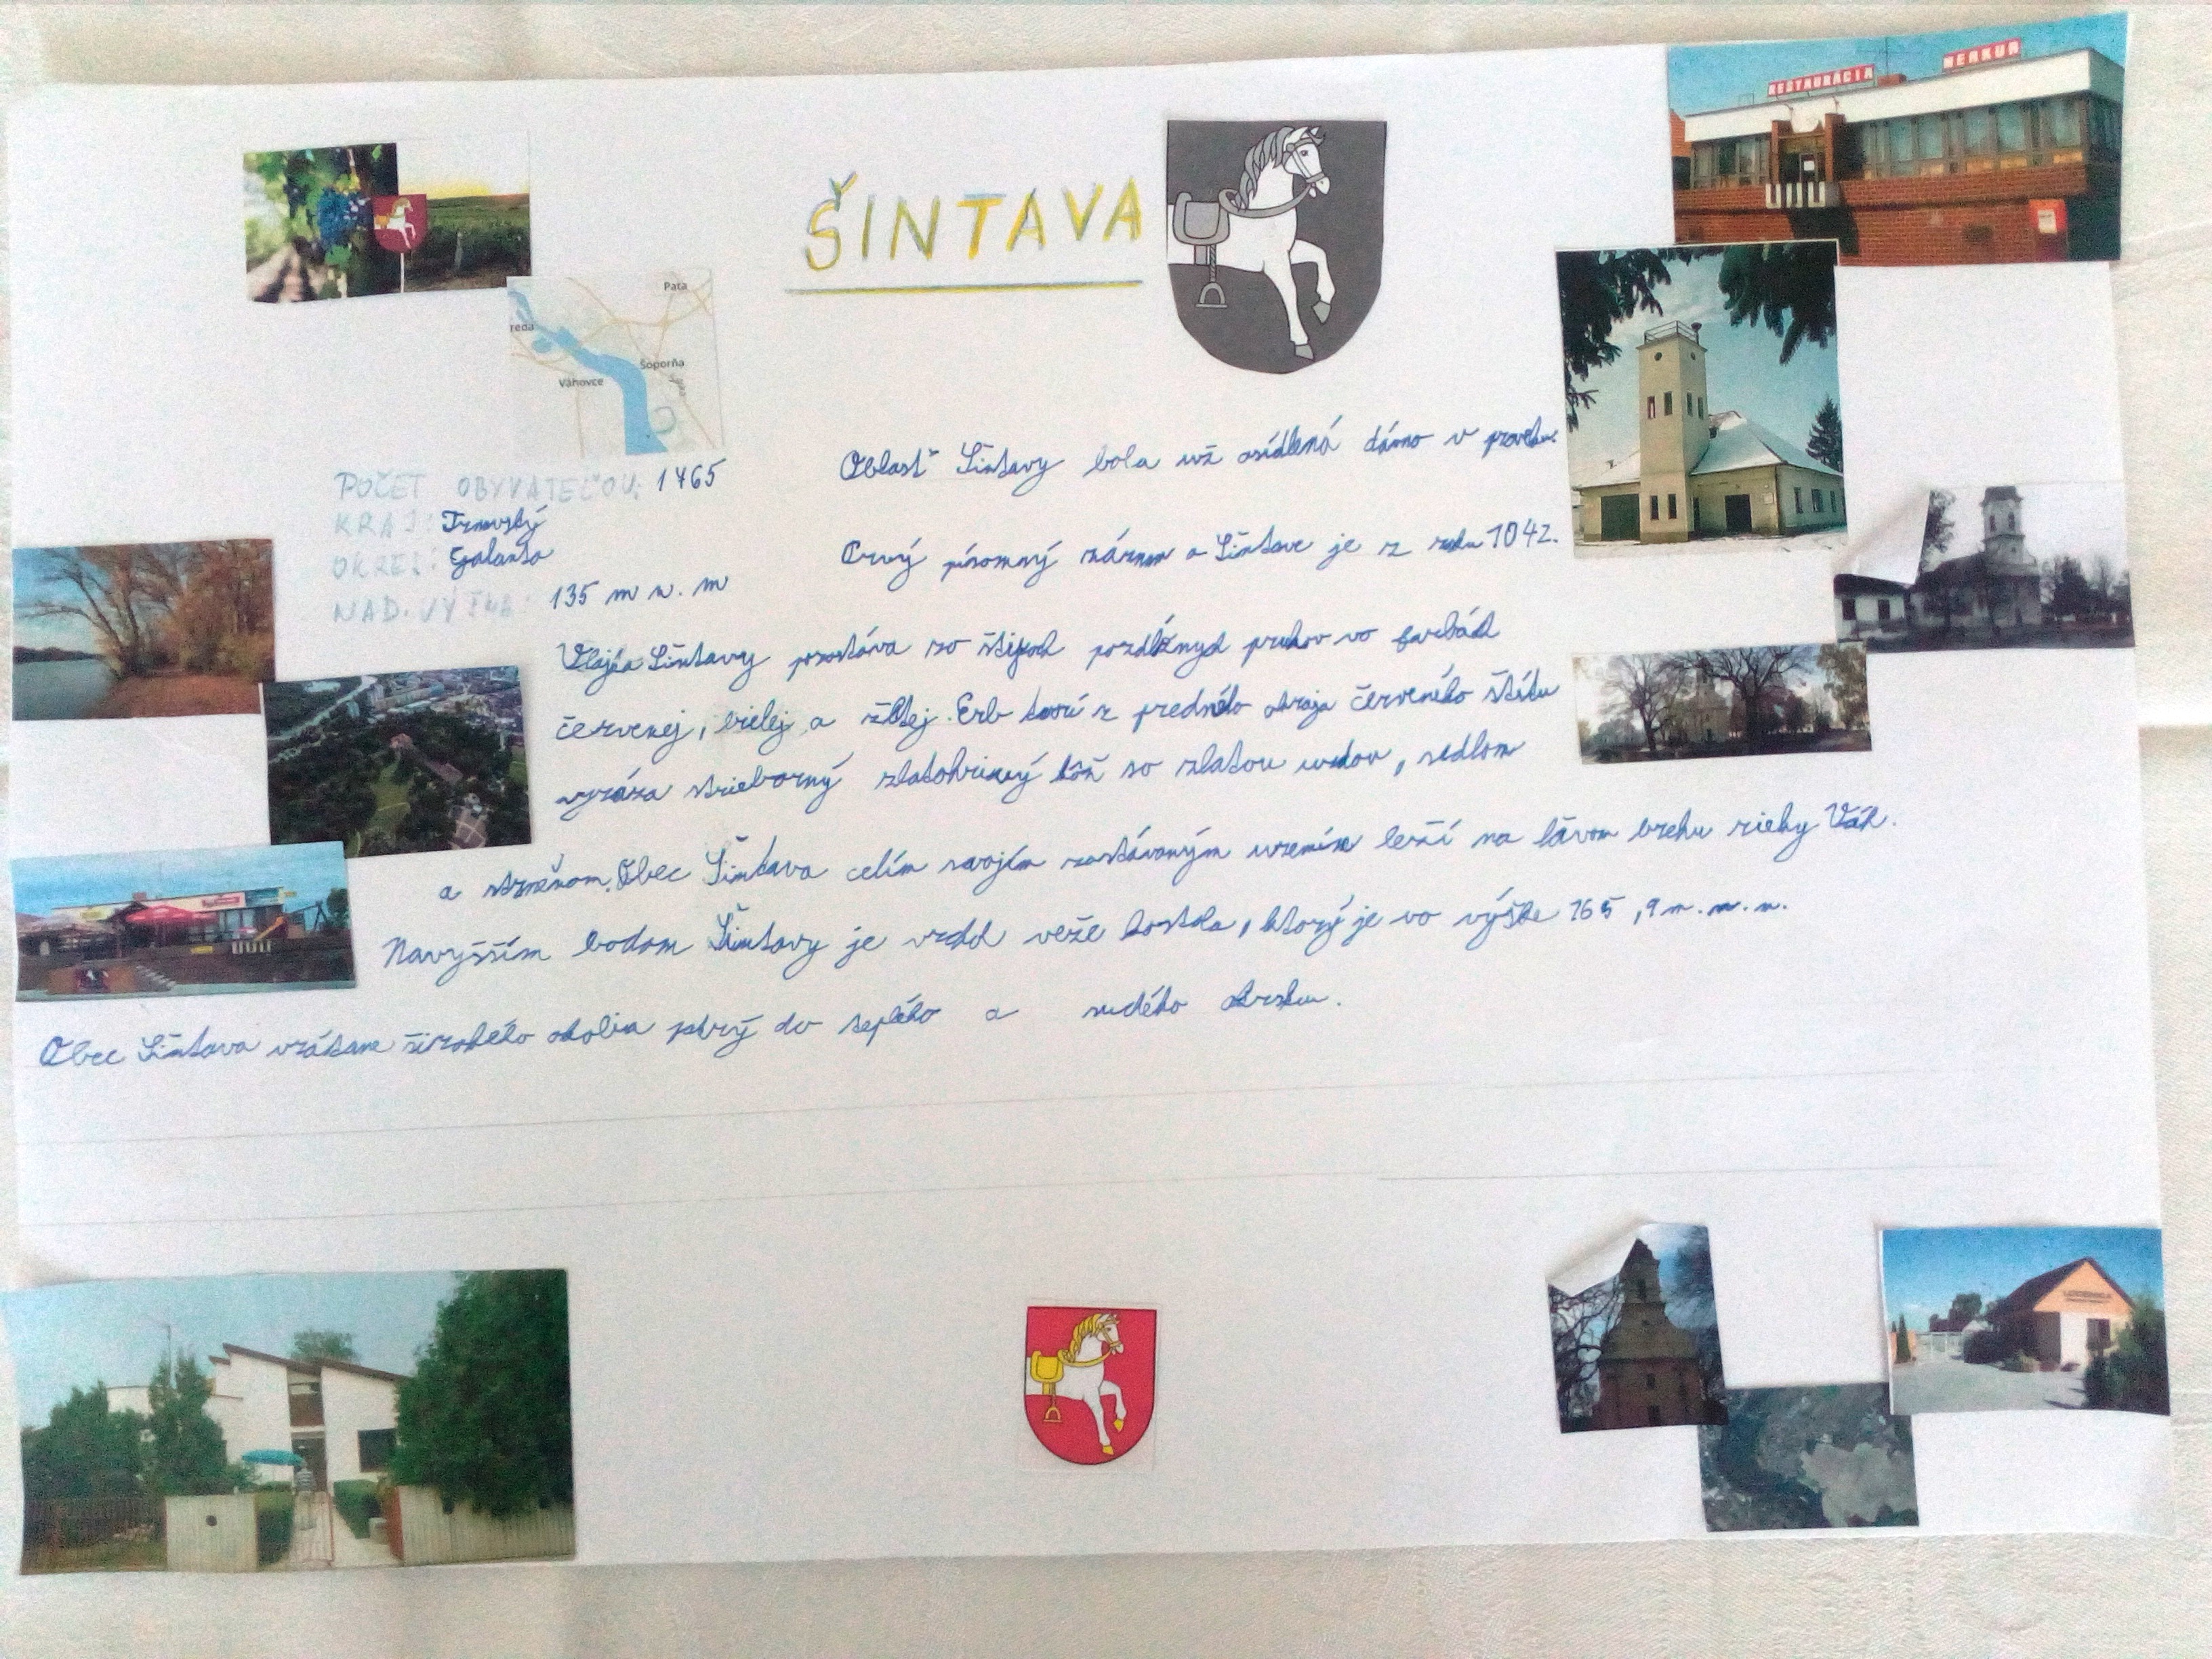 ŠINTAVA
RESTAURÁCIA
MERKUR
Pata
reda
Šoporňa
Váhovce
POČET OBYVATEĽOV: 1465
KRAJ: Trnavský
OKRES: Galanta
NAD. VÝŠKA: 135 m n. m
Oblasť Šintavy bola už osídlená dávno v praveku.
Prvý písomný záznam o Šintave je z roku 1042.
Vlajka Šintavy pozostáva zo štyroch pozdĺžnych pruhov vo farbách
červenej, bielej a žltej. Erb tvorí z predného okraja červeného štítu
vyráža strieborný zlatohrivý kôň so zlatou uzdou, sedlom
a strmeňom. Obec Šintava celím svojím zastávaným územím leží na ľavom brehu rieky Váh.
Navyšším bodom Šintavy je vrchol veže kostola, ktorý je vo výške 165,9 m. m. n.
Obec Šintava vrátane širokého okolia patrý do teplého a suchého okrsku.